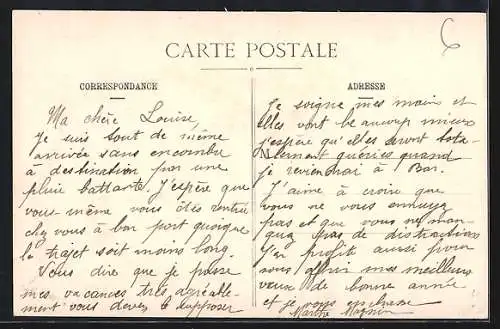 CARTE POSTALE
CORRESPONDANCE
Ma chère Louise,
Je suis tout de même
arrivée sans encombre
à destination par une
pluie battante. J'espère que
vous-même vous êtes rentrée
chez vous à bon port quoique
le trajet soit moins long.
Vous dire que je passe
mes vacances très agréable-
ment vous devez le supposer
ADRESSE
Je soigne mes mains et
elles vont beaucoup mieux
j'espère qu'elles seront tota-
lement guéries quand
je reviendrai à Bar.
J'aime à croire que
vous ne vous ennuyez
pas et que vous ne man-
quez pas de distractions
J'en profite aussi pour
vous offrir mes meilleurs
vœux de bonne année
et je vous embrasse
Marthe